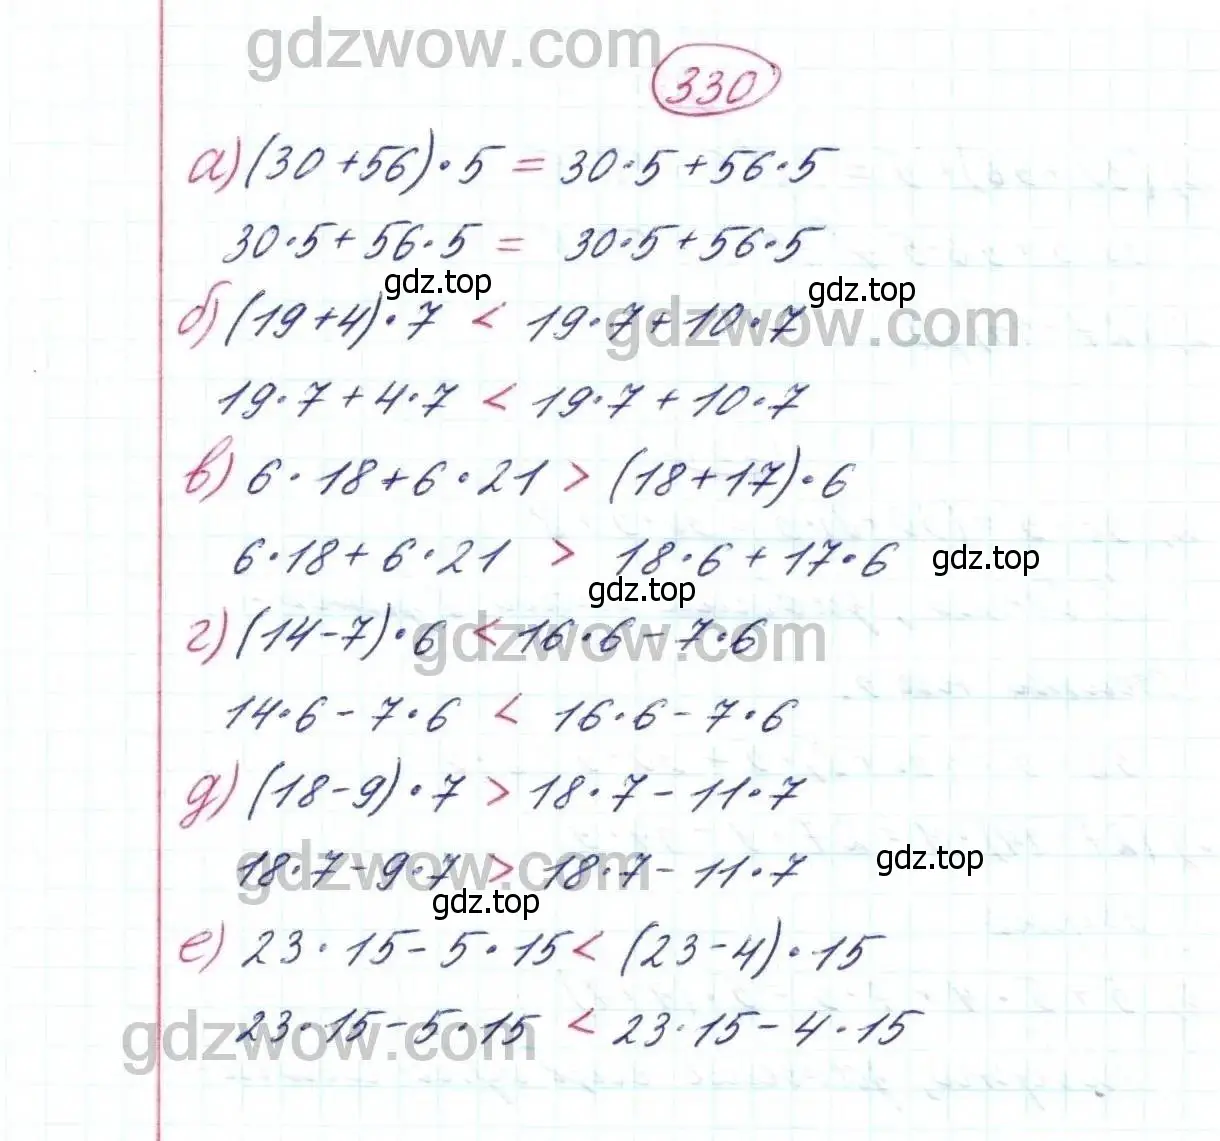 gdzwow.com
330
а) (30+56)·5 = 30·5+56·5
30·5+56·5 = 30·5+56·5
gdz.top gdz.top
б) (19+4)·7 < 19·7+10·7
gdzwow.com
19·7+4·7 < 19·7+10·7
в) 6·18+6·21 > (18+17)·6
6·18+6·21 > 18·6+17·6 gdz.top
gdz.top
г) (14-7)·6 < 16·6-7·6
gdzwow.com
14·6-7·6 < 16·6-7·6
д) (18-9)·7 > 18·7-11·7
18·7-9·7 > 18·7-11·7 gdz.top
gdzwow.com
gdz.top
е) 23·15-5·15 < (23-4)·15
23·15-5·15 < 23·15-4·15
gdzwow.com